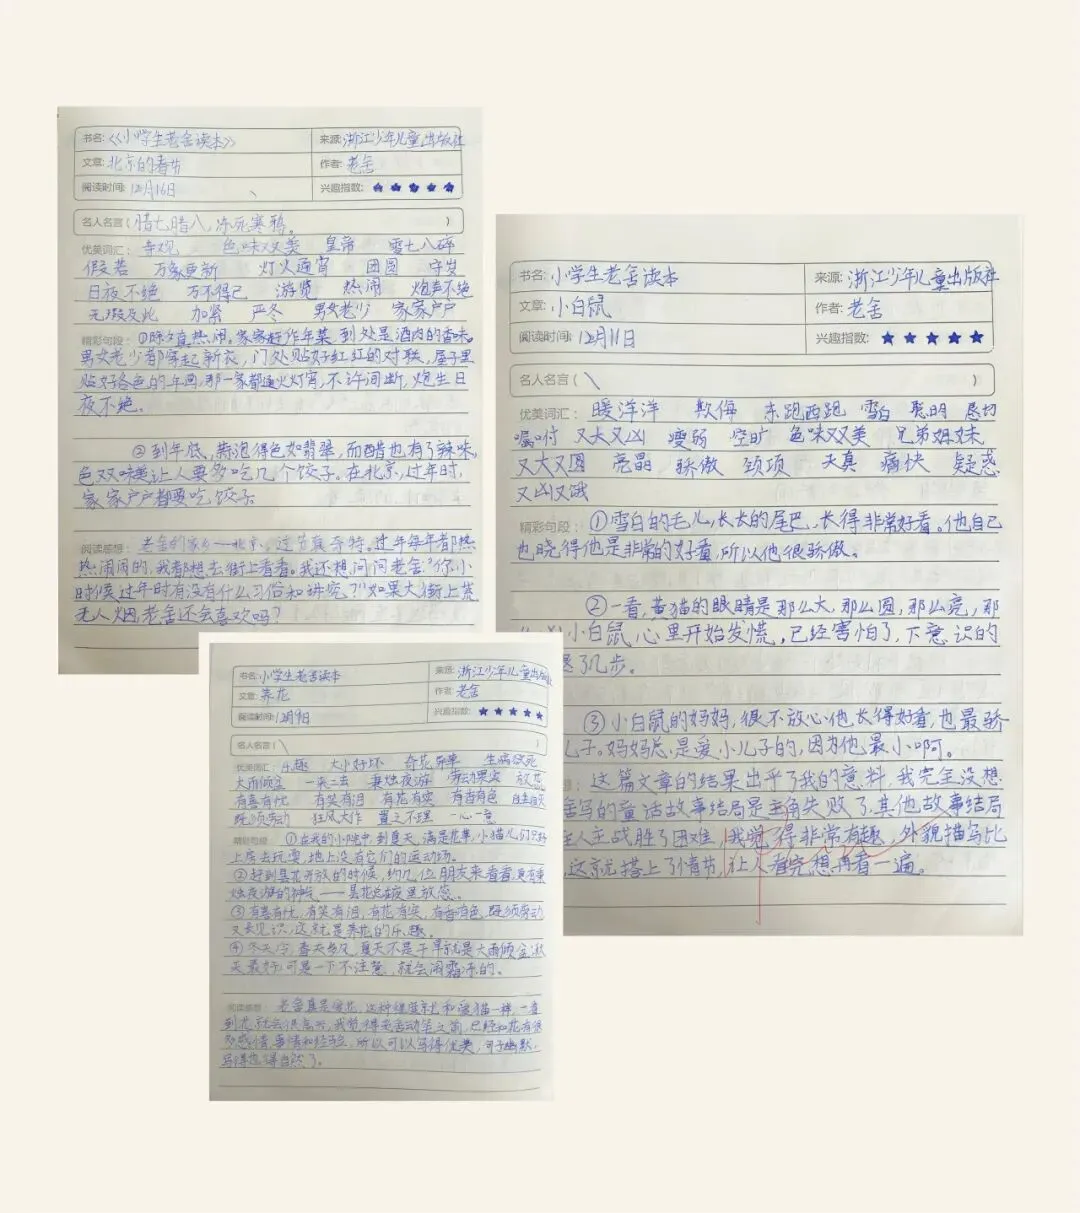 书名:《小学生老舍读本》 来源:浙江少年儿童出版社
文章:北京的春节 作者:老舍
阅读时间:12月16日 兴趣指数:★★★★★
名人名言(腊七腊八,冻死寒鸦。)
优美词汇: 奇观 色味双美 皇帝 零七八碎
万象更新 灯火通宵 团圆 守岁
日夜不绝 万不得已 游览 热闹 炮声不绝
无暇及此 加紧 严冬 男女老少 家家户户
精彩句段:①除夕真热闹。家家赶作年菜,到处是酒肉的香味。
男女老少都穿起新衣,门外贴好红红的对联,屋子里
贴好各色的年画,那一家都通火灯宵,不许间断,炮生日
夜不绝。
②到年底,蒜泡得色如翡翠,而醋也有了辣味,
色双味美让人要多吃几个饺子。在北京,过年时,
家家户户都要吃饺子
阅读感想: 老舍的家乡——北京,过节真奇特。过年每年都热
热闹闹的,我都想去街上看看。我还想问问老舍“你小
时候过年时有没有什么习俗和讲究?”如果大街上荒
无人烟,老舍还会喜欢吗?
书名:小学生老舍读本 来源:浙江少年儿童出版社
文章:小白鼠 作者:老舍
阅读时间:12月11日 兴趣指数:★★★★★
名人名言(\ )
优美词汇: 暖洋洋 欺侮 东跑西跑 雪白 聪明 恳切
嘱咐 又大又凶 瘦弱 空旷 色味双美 兄弟姐妹
又大又圆 亮晶 骄傲 颈项 天真 痛快 疑惑
又凶又饿
精彩句段:①雪白的毛儿,长长的尾巴,长得非常好看。他自己
也晓得他是非常的好看,所以他很骄傲。
②一看,黄猫的眼睛是那么大,那么圆,那么亮,那
小白鼠心里开始发慌,已经害怕了,下意识的
退了几步。
③小白鼠的妈妈,很不放心他,长得好看,也最骄
儿子。妈妈总是爱小儿子的,因为他最小啊。
这篇文章的结果出乎了我的意料,我完全没想
舍写的童话故事结局是主角失败了,其他故事结局
主人主战胜了困难,我觉得非常有趣,外貌描写比
这就搭上了情节,让人看完想再看一遍。
书名:小学生老舍读本 来源:浙江少年儿童出版社
文章:养花 作者:老舍
阅读时间:12月9日 兴趣指数:★★★★★
名人名言(\ )
优美词汇: 乐趣 大小好坏 奇花异草 生病欲死
大雨倾盆 一来二去 秉烛夜游 劳动果实 放慈
有喜有忧 有笑有泪 有花有实 有香有色
既须劳动 狂风大作 置之不理 一心一意
精彩句段: ①在我的小院中,到夏天,满是花草,小猫儿们只好
上房去玩耍,地上没有它们的运动场。
②赶到昙花开放的时候,约几位朋友来看看,更有秉
烛夜游的神气——昙花总在夜里放慈。
③有喜有忧,有笑有泪,有花有实,有香有色,既须劳动
又长见识,这就是养花的乐趣。
④冬天冷,春天多风,夏天不是干旱就是大雨倾盆,秋
天最好,可是一下不注意,就会闹霜冻的。
阅读感想: 老舍真是爱花,这种细致就和爱猫一样,一看
到花,就会很高兴,我觉得老舍动笔之前,已经和花有很
多感情,事情和经验,所以可以写得优美,句子幽默,
写得也得自然了。